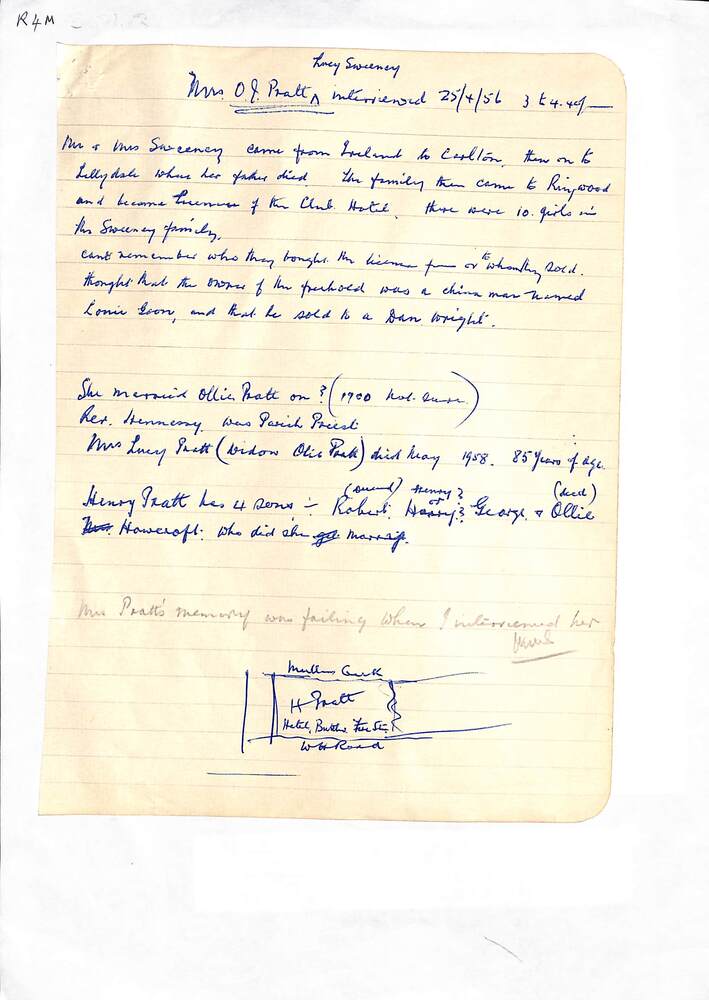 R4M
Lucy Sweeney
Mrs. O.J. Pratt ^ interviewed 25/4/56 3 to 4.40
Mr & Mrs Sweeney came from Ireland to Carlton, then on to
Lillydale where her father died. The family then came to Ringwood
and became Licensee of the Club Hotel. there were 10. girls in
the Sweeney family.
cant remember who they bought the license from or to whom they sold.
thought that the owner of the freehold was a china man named
Louie Goon, and that he sold to a Dan Wright.
She married Ollie Pratt on ? (1900 not sure)
Rev. Hennessy was Parish Priest
Mrs Lucy Pratt (widow Olie Pratt) died May 1958. 85 years of age.
(deceased) Henry? (decd)
Henry Pratt has 4 sons :- Robert. or Harry? George. & Ollie
Howcroft. who did she marry.
Mrs Pratt's memory was failing when I interviewed her
Mullum Creek
H Pratt
Hotel, Butcher
W H Road